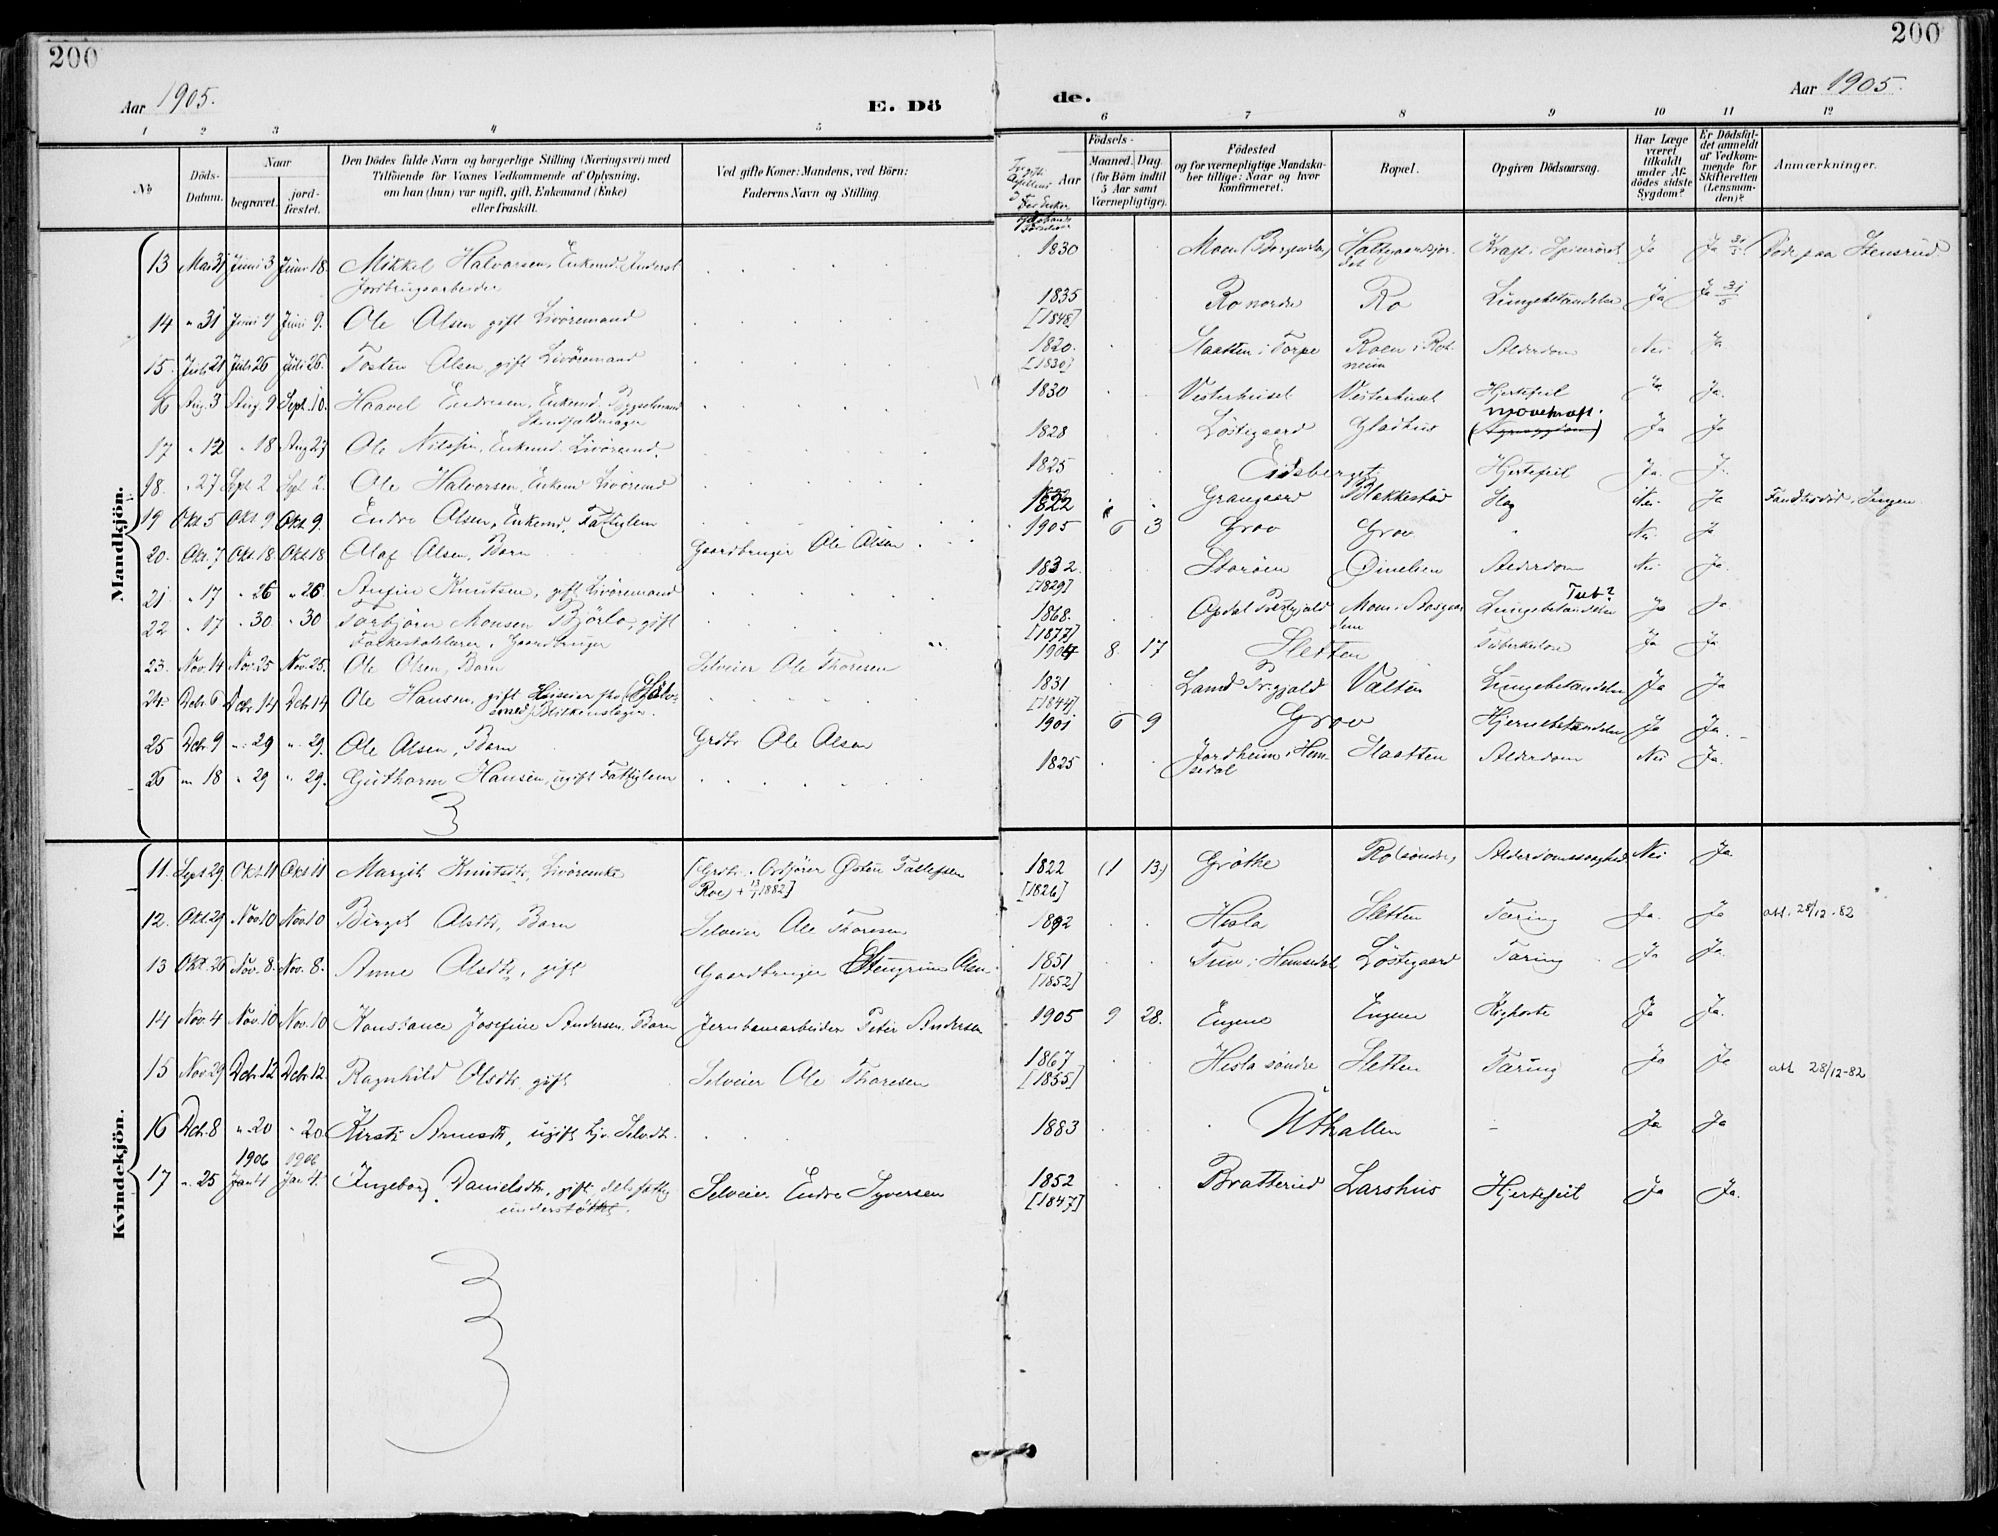 200
200
Aar 1905.
E. Dö
de.
Aar 1905.
1 2 3 4 5 6 7 8 9 10 11 12
No
Döds-Datum.
Naar
begravet.
jordfæstet.
Den Dödes fulde Navn og borgerlige Stilling (Næringsvei) med
Tilföiende for Voxnes Vedkommende af Oplysning,
om han (hun) var ugift, gift, Enkemand (Enke)
eller fraskilt.
Ved gifte Koner: Mandens, ved Börn:
Faderens Navn og Stilling
Födsels-
Aar
Maaned. Dag
(for Börn indtil
5 Aar samt
Værnepligtige).
Födested
og for værnepligtige Mandskaber tillige: Naar og hvor
Konfirmeret.
Bopæl.
Opgiven Dödsaarsag.
Har Læge
været
tilkaldt
under Afdödes sidste
Sygdom?
Er Dödsfaldet anmeldt
af Vedkommende for
Skifteretten
(Lensmanden)?
Anmærkninger.
Mandkjön.
13 Mai 31 Juni 3 Juni 18. Mikkel Halvorsen, Enkemd. Jordbrugsarbeider 1830 Moen Kræft i Spiserøret Ja Ja 31/5 Døde paa Stensrud
14 " 31 Juni 9 Juni 9. Ole Olsen gift Livøremand 1835 [1848] Ro nordre Ro Lungebetændelse Ja Ja 31/5
15. Juli 21 Juli 26 Juli 26. Tosten Olsen, gift Livøremand 1820. [1830] Slaatten i Torpe Roen i Rotneim Alderdom Nei Ja
16 Aug. 3 Aug. 9 Sept. 10. Haavel Endresen, Enkemd. 1830 Vesterhuset Vesterhuset Hjertefeil Ja Ja.
17 " 12 " 18 Aug 27 Ole Nilssen, Enkemd. Livøremd. 1828 Løstegaard Gladhus Ja Ja
18. " 27 Sept 2 Sept 2. Ole Halvorsen, Enkemd Livøremd 1825 Eidsberget Hjertefeil Ja. J.
19 Okt. 5 Okt 9 Okt. 9. Endre Olsen, Enkemd. Fattiglem 1822 Grangaard Bakkestød Slag Nei Ja
20. Okt. 7 Okt. 18. Okt. 18 Olaf Olsen, Barn Gaardbruger Ole Olsen 1905 6 3 Grov Grov " Nei Ja
21. " 17 " 26 " 26 Anfin Knutsen, gift Livøremand 1832. [1829] Storøen Øinelien Alderdom Nei Ja.
22 " 17 " 30 " 30 Torbjørn Monsen Bjørlo, gift
Folkeskolelærer, Gaardbruger 1868. [1877] Opdal Præstegjæld Lungebetændelse Tub? Ja Ja
23. Nov. 14 Nov. 25 Nov. 25. Ole Olsen, Barn Selveier Ole Thoresen 1904 8. 17 Sletten Tuberkulose Ja Ja.
24. Dcbr. 6 Dcbr. 14 Dcbr. 14 Ole Hansen, gift Blikkenslager. 1831 [1844] Land Prgjæld Valten Lungebetændelse Ja Ja
25 Dcbr. 9 " 29 " 29. Ole Olsen, Barn Grdbr Ole Olsen 1901 6 9 Grov Hjernebetændelse Ja Ja.
26 " 18 " 29 " 29. Guthorm Hansen, ugift Fattiglem 1825 Jordheim i Hemsedal Slaatten Alderdom Nei Ja.
Kvindekjön.
11. Sept. 29. Okt. 11 Okt 11 Margit Knutsdtr, Livørenke [Grdbr. Ordfører Østen Tollefsen
Roe, + 13/1 1882] 1822 [1826] (1 13.) Grøthe Rotsøndre, Alderdomssvaghed Nei Ja.
12. Okt. 29 Nov. 10 Nov. 10 Birgit Olsdtr, Barn Selveier Ole Thoresen 1892 Hesla Sletten Tæring Ja. Ja att. 28/12-82
13 Okt. 26 Nov. 8. Nov. 8. Anne Olsdtr, gift Gaardbruger Stengrim Olsen 1851 [1852] Tuv i Hemsedal Løstegaard Tæring Ja Ja.
14 Nov. 4 Nov. 10 Nov. 10 Konstance Josefine Andersen, Barn Jernbanearbeider Peter Andersen 1905 9 28. Engene Engene Kighoste Ja Ja.
15 Nov 29 Dcbr. 12 Dcbr. 12. Ragnhild Olsdtr, gift Selveier Ole Thoresen 1867 [1855] Hesla søndre Sletten Tæring Ja Ja att 28/12-82
16 Dcbr. 8 " 20 " 20 Kirsti Arnesdtr, ugift Uthallen - Ja Ja
17 " 25 1906 Jan 4 1906 Jan 4. Ingeborg Danielsdtr, gift, dels fattig
understøttet. Selveier Endre Syversen 1852 [1847] Bratterud Larshus Hjertefeil Ja Ja.